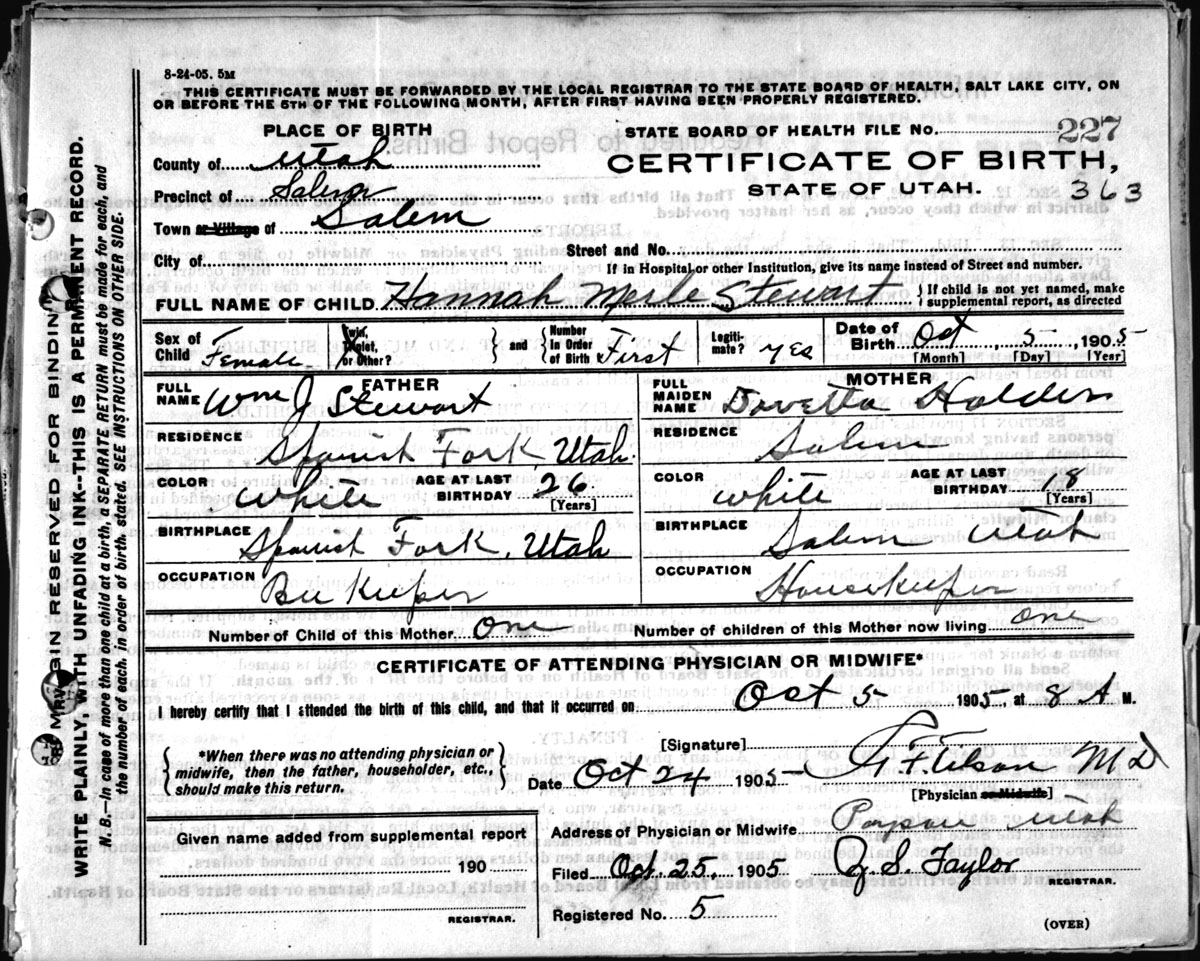 8-24-05. 5M
THIS CERTIFICATE MUST BE FORWARDED BY THE LOCAL REGISTRAR TO THE STATE BOARD OF HEALTH, SALT LAKE CITY, ON
OR BEFORE THE 5TH OF THE FOLLOWING MONTH, AFTER FIRST HAVING BEEN PROPERLY REGISTERED.
PLACE OF BIRTH
County of Utah
Precinct of Salem
Town or Village of Salem
City of
STATE BOARD OF HEALTH FILE No. 227
CERTIFICATE OF BIRTH,
STATE OF UTAH. 363
Street and No.
If in Hospital or other Institution, give its name instead of Street and number.
FULL NAME OF CHILD Hannah Merle Stewart { If child is not yet named, make
supplemental report, as directed
Sex of Child Female
Twin, Triplet, or Other? } and { Number In Order of Birth First
Legitimate? yes
Date of Birth Oct, 5, 1905
[Month] [Day] [Year]
FATHER
FULL NAME Wm J Stewart
RESIDENCE Spanish Fork, Utah.
COLOR White AGE AT LAST BIRTHDAY 26 [Years]
BIRTHPLACE Spanish Fork, Utah
OCCUPATION Bee Keeper
MOTHER
FULL MAIDEN NAME Dovetta Holden
RESIDENCE Salem
COLOR white AGE AT LAST BIRTHDAY 18 [Years]
BIRTHPLACE Salem Utah
OCCUPATION Housekeeper
Number of Child of this Mother One Number of children of this Mother now living one
CERTIFICATE OF ATTENDING PHYSICIAN OR MIDWIFE*
I hereby certify that I attended the birth of this child, and that it occurred on Oct 5 1905, at 8 A M.
{ *When there was no attending physician or
midwife, then the father, householder, etc.,
should make this return. }
[Signature] M D
Date Oct 24 1905
[Physician or Midwife]
Given name added from supplemental report
190
REGISTRAR.
Address of Physician or Midwife Utah
Filed Oct. 25, 1905 S. Taylor
REGISTRAR.
Registered No. 5
(OVER)
MARGIN RESERVED FOR BINDING
WRITE PLAINLY, WITH UNFADING INK--THIS IS A PERMANENT RECORD.
N. B.—In case of more than one child at a birth, a SEPARATE RETURN must be made for each, and
the number of each, in order of birth, stated. SEE INSTRUCTIONS ON OTHER SIDE.